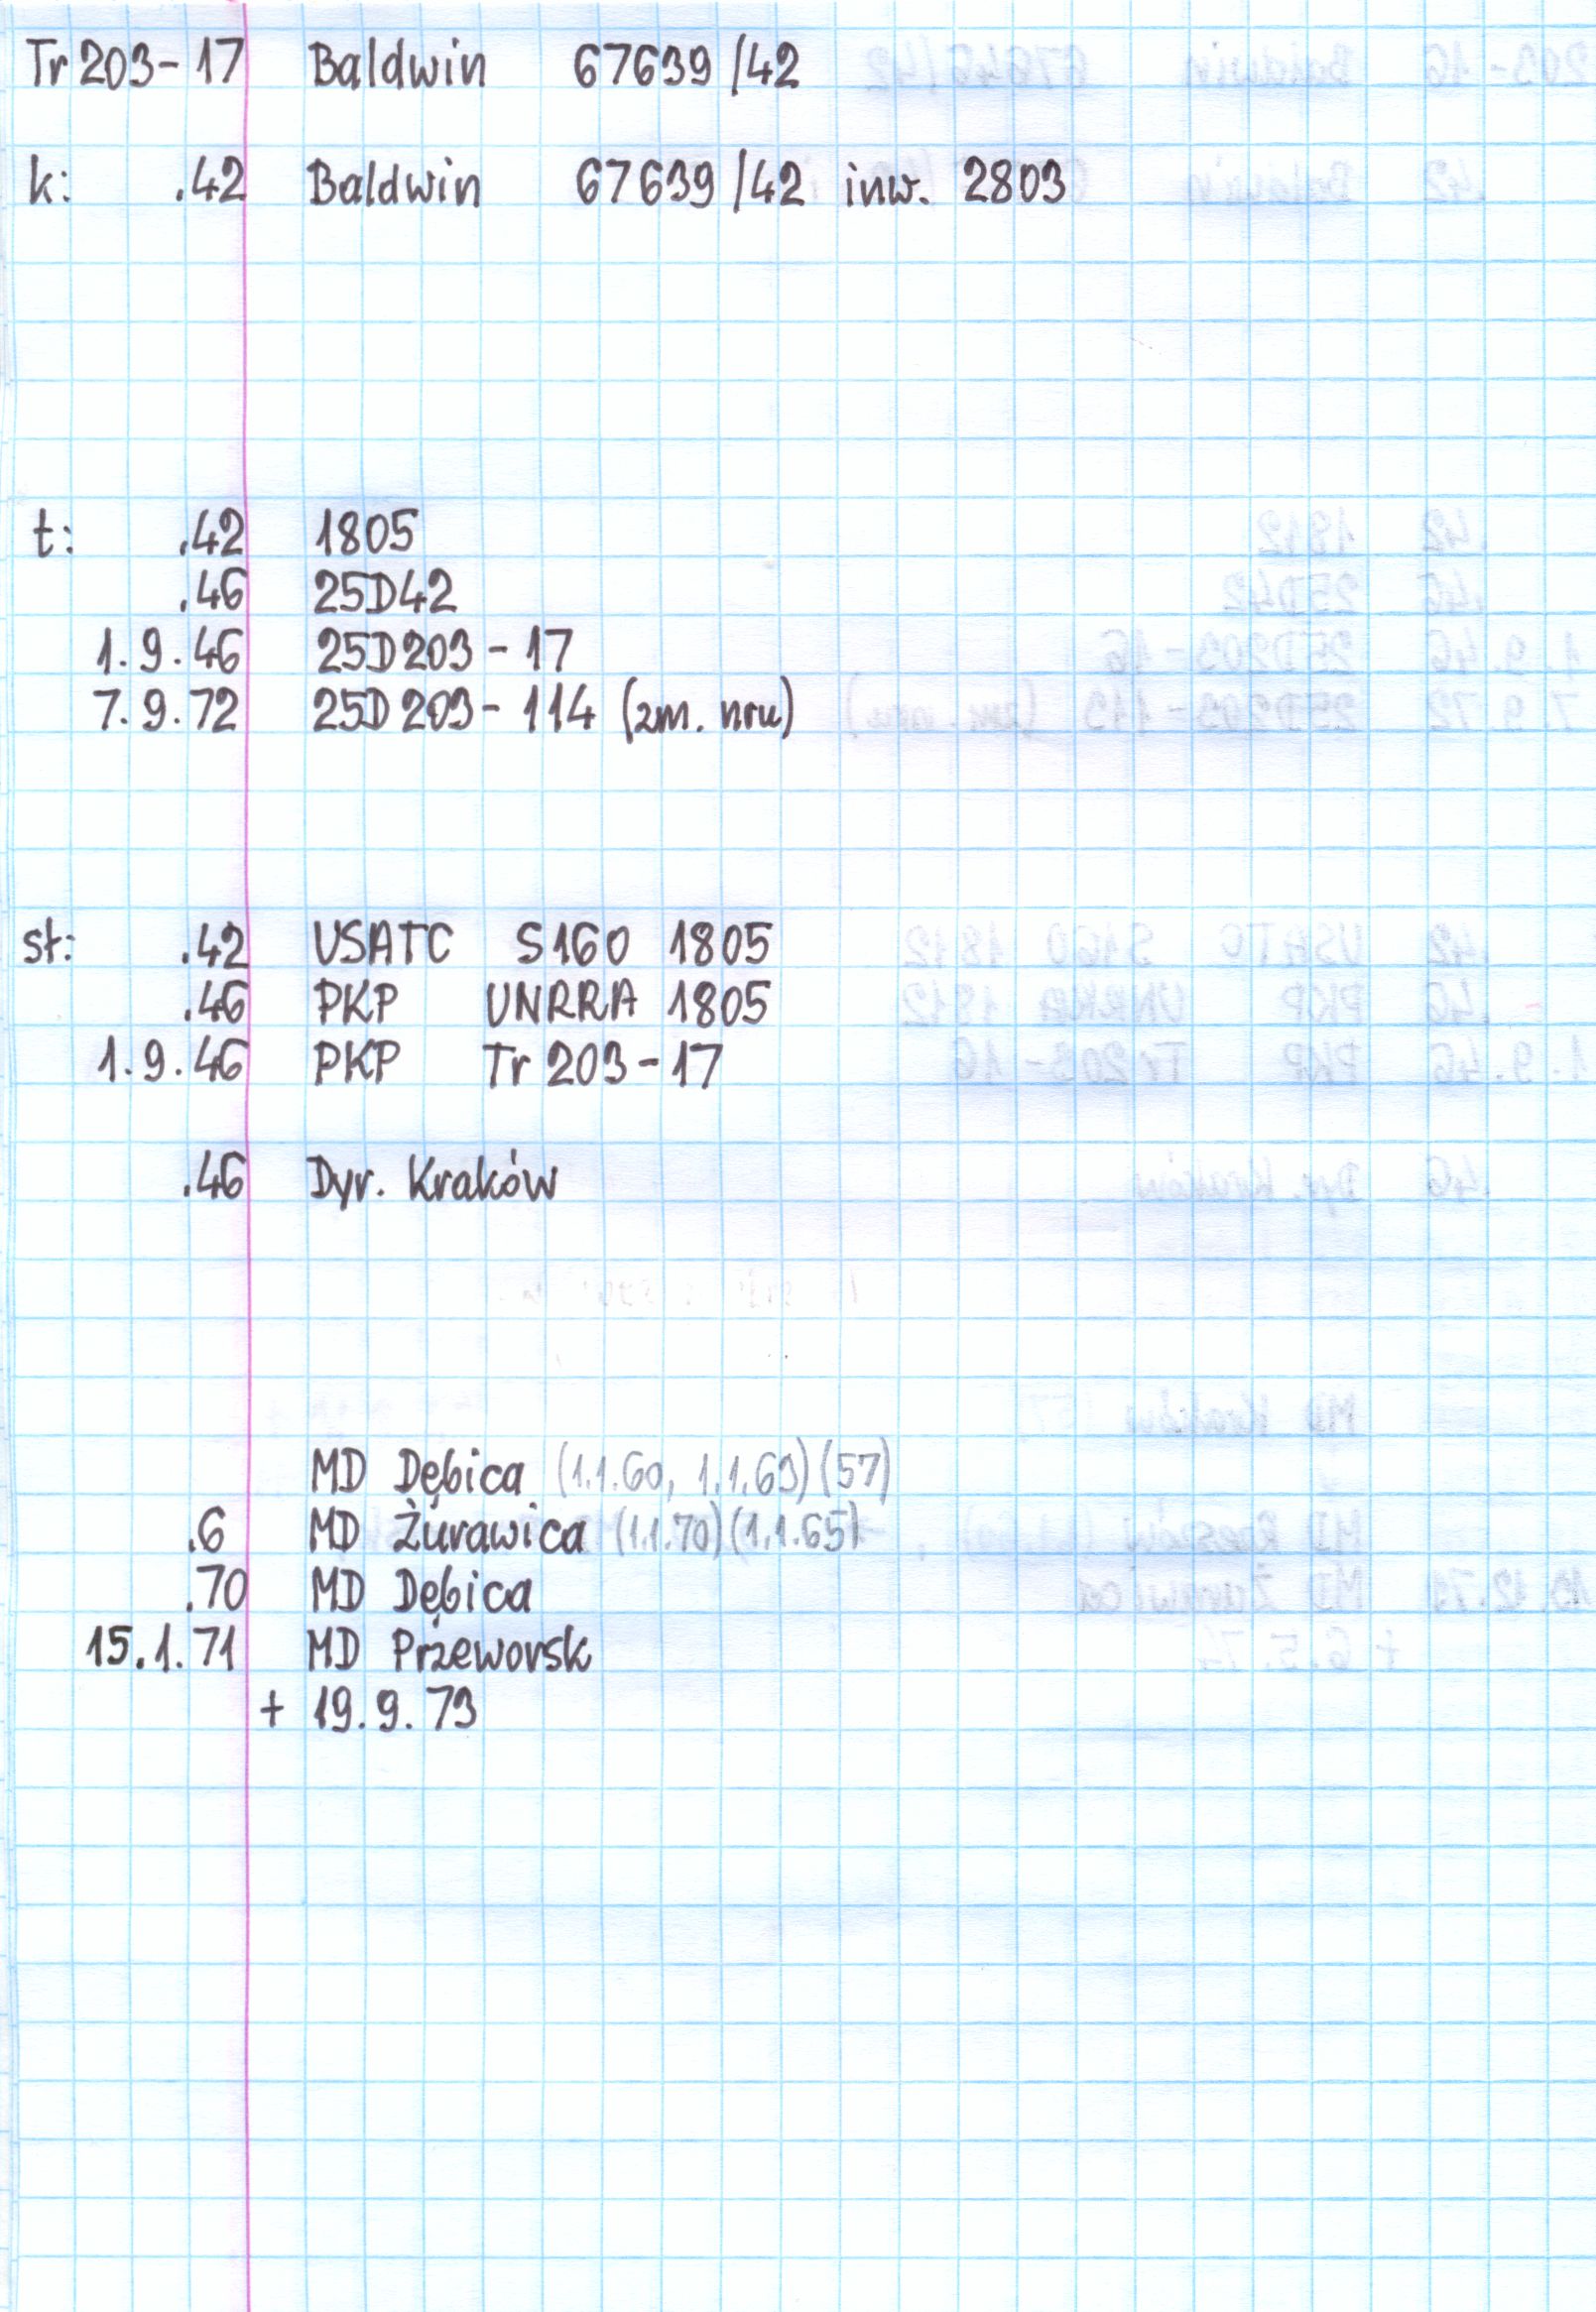 Tr 203-17 Baldwin 67639/42
k: .42 Baldwin 67639/42 inw. 2803
t: .42 1805
.46 25D42
1.9.46 25D203-17
7.9.72 25D203-114 (zm. nru)
st: .42 USATC S160 1805
.46 PKP UNRRA 1805
1.9.46 PKP Tr 203-17
.46 Dyr. Kraków
MD Dębica (1.1.60, 1.1.63) (57)
.6 MD Żurawica (1.1.70) (1.1.65)
.70 MD Dębica
15.1.71 MD Przeworsk
+ 19.9.73